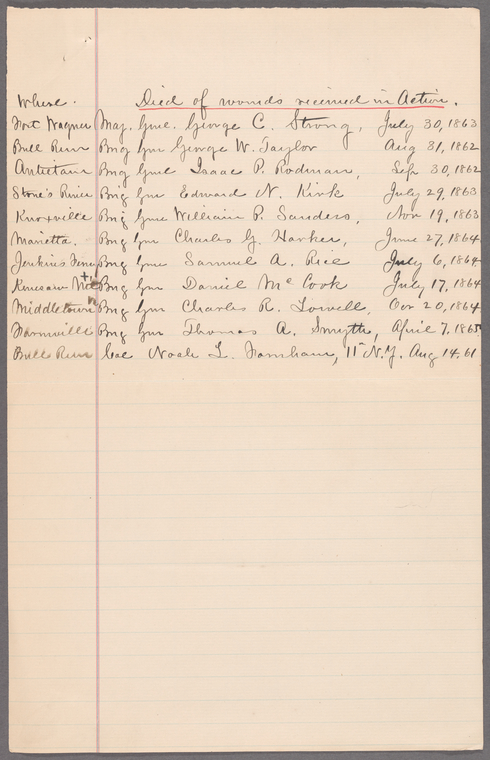 Where. Died of wounds received in Action.
Fort Wagner Maj. Genl. George C. Strong, July 30, 1863
Bull Run Brig Gen George W. Taylor Aug 31, 1862
Antietam Brig Genl Isaac P. Rodman, Sep. 30, 1862
Stone's River Brig Gen Edward N. Kirk July 29, 1863
Knoxville Brig Genl William P. Sanders, Nov 19, 1863
Marietta. Brig Gen Charles G. Harker, June 27, 1864
Jenkins Ferry Brig Genl Samuel A. Rice July 6, 1864
Kenesaw Mt Brig Gen Daniel McCook July 17, 1864
Middletown Brig Gen Charles R. Lowell, Oct 20, 1864
Farmville Brig Gen Thomas A. Smyth, April 7, 1865
Bull Run Col Noah L. Farnham, 11" N.Y. Aug 14. 61